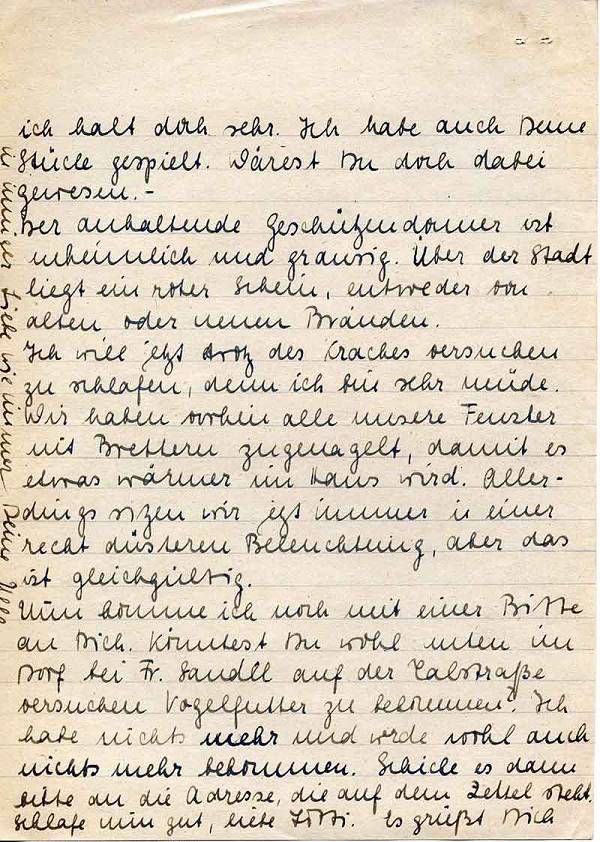 ich halt doch sehr. Ich habe auch Deine
Stücke gespielt. Wärest Du doch dabei
gewesen.-
Der anhaltende Geschützendonner ist
unheimlich und grausig. Über der Stadt
liegt ein roter Schein, entweder von
alten oder neuen Bränden.
Ich will jetzt trotz des Kraches versuchen
zu schlafen, denn ich bin sehr müde.
Wir haben vorhin alle unsere Fenster
mit Brettern zugenagelt, damit es
etwas wärmer im Haus wird. Aller-
dings sitzen wir jetzt immer in einer
recht düsteren Beleuchtung, aber das
ist gleichgültig.
Nun komme ich noch mit einer Bitte
an Dich. Könntest Du wohl unten im
Dorf bei Fr. Sandll auf der Talstraße
versuchen Vogelfutter zu bekommen? Ich
habe nichts mehr und werde wohl auch
nichts mehr bekommen. Schicke es dann
bitte an die Adresse, die auf dem Zettel steht.
Schlafe nun gut, liebe Lotti. Es grüßt Dich
in inniger Liebe wie immer Deine